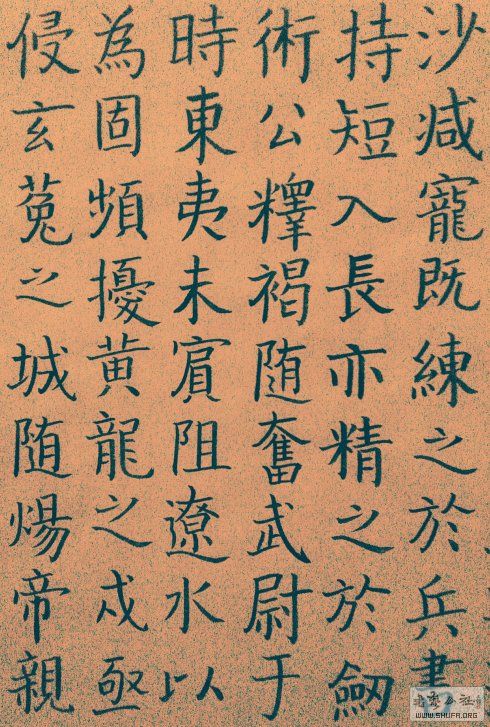 沙減寵既練之於兵書
持短入長亦精之於劒
術公釋褐随奮武尉于
時東夷未賔阻遼水以
為固頻擾黄龍之戍亟
侵玄菟之城随煬帝親
WWW.SHUFA.ORG